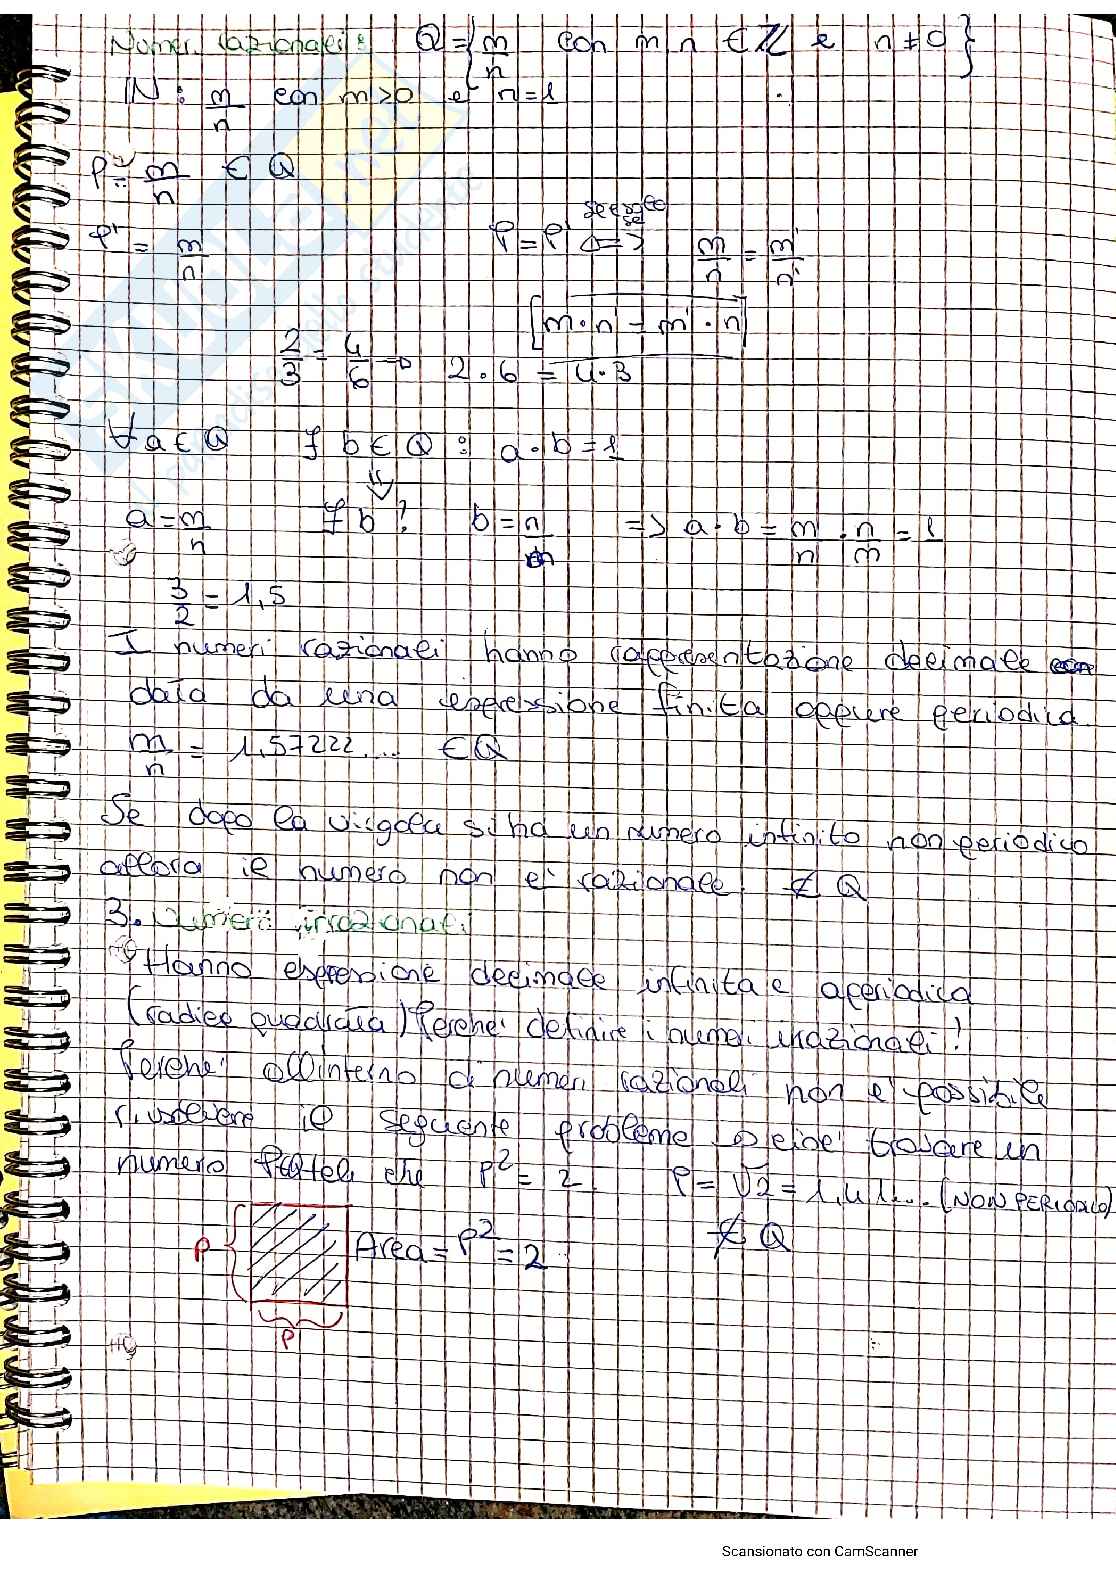 Numeri razionali: Q = { m/n con m n ∈ ℤ e n ≠ 0 }
IN : m/n con m>0 e n=1
P = m/n ∈ Q
P' = m'/n' P = P' <=> se e solo se m/n = m'/n'
[m·n' = m'·n]
2/3 = 4/6 → 2·6 = 4·3
∀ a ∈ Q ∃ b ∈ Q : a·b = 1
a = m/n ∃ b ? b = n/m => a·b = m/n · n/m = 1
3/2 = 1,5
I numeri razionali hanno rappresentazione decimale
data da una espressione finita oppure periodica
m/n = 1,57222.... ∈ Q
Se dopo la virgola si ha un numero infinito non periodico
allora il numero non e' razionale ∉ Q
3. Numeri irrazionali
Hanno espressione decimale infinita e aperiodica
(radice quadrata) Perche' definire i numeri irazionali?
Perche' all'interno di numeri razionali non e' possibile
risolvere il seguente problema → cioe' trovare un
numero P che P² = 2 P = √2 = 1,41... (NON PERIODICO)
P Area = P² = 2 ∉ Q
P
Scansionato con CamScanner